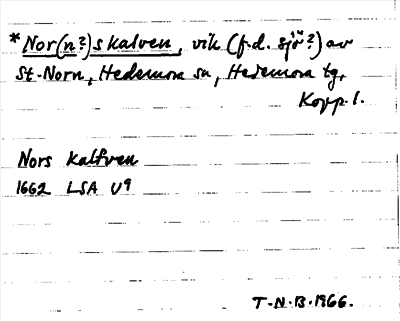 *Nor(n?)skalven, vik (f.d. sjö?) av
St. Norn, Hedemora sn, Hedemora tg,
Kopp. l.
Nors Kalfven
1662 LSA U9
T.N.B. 1966.